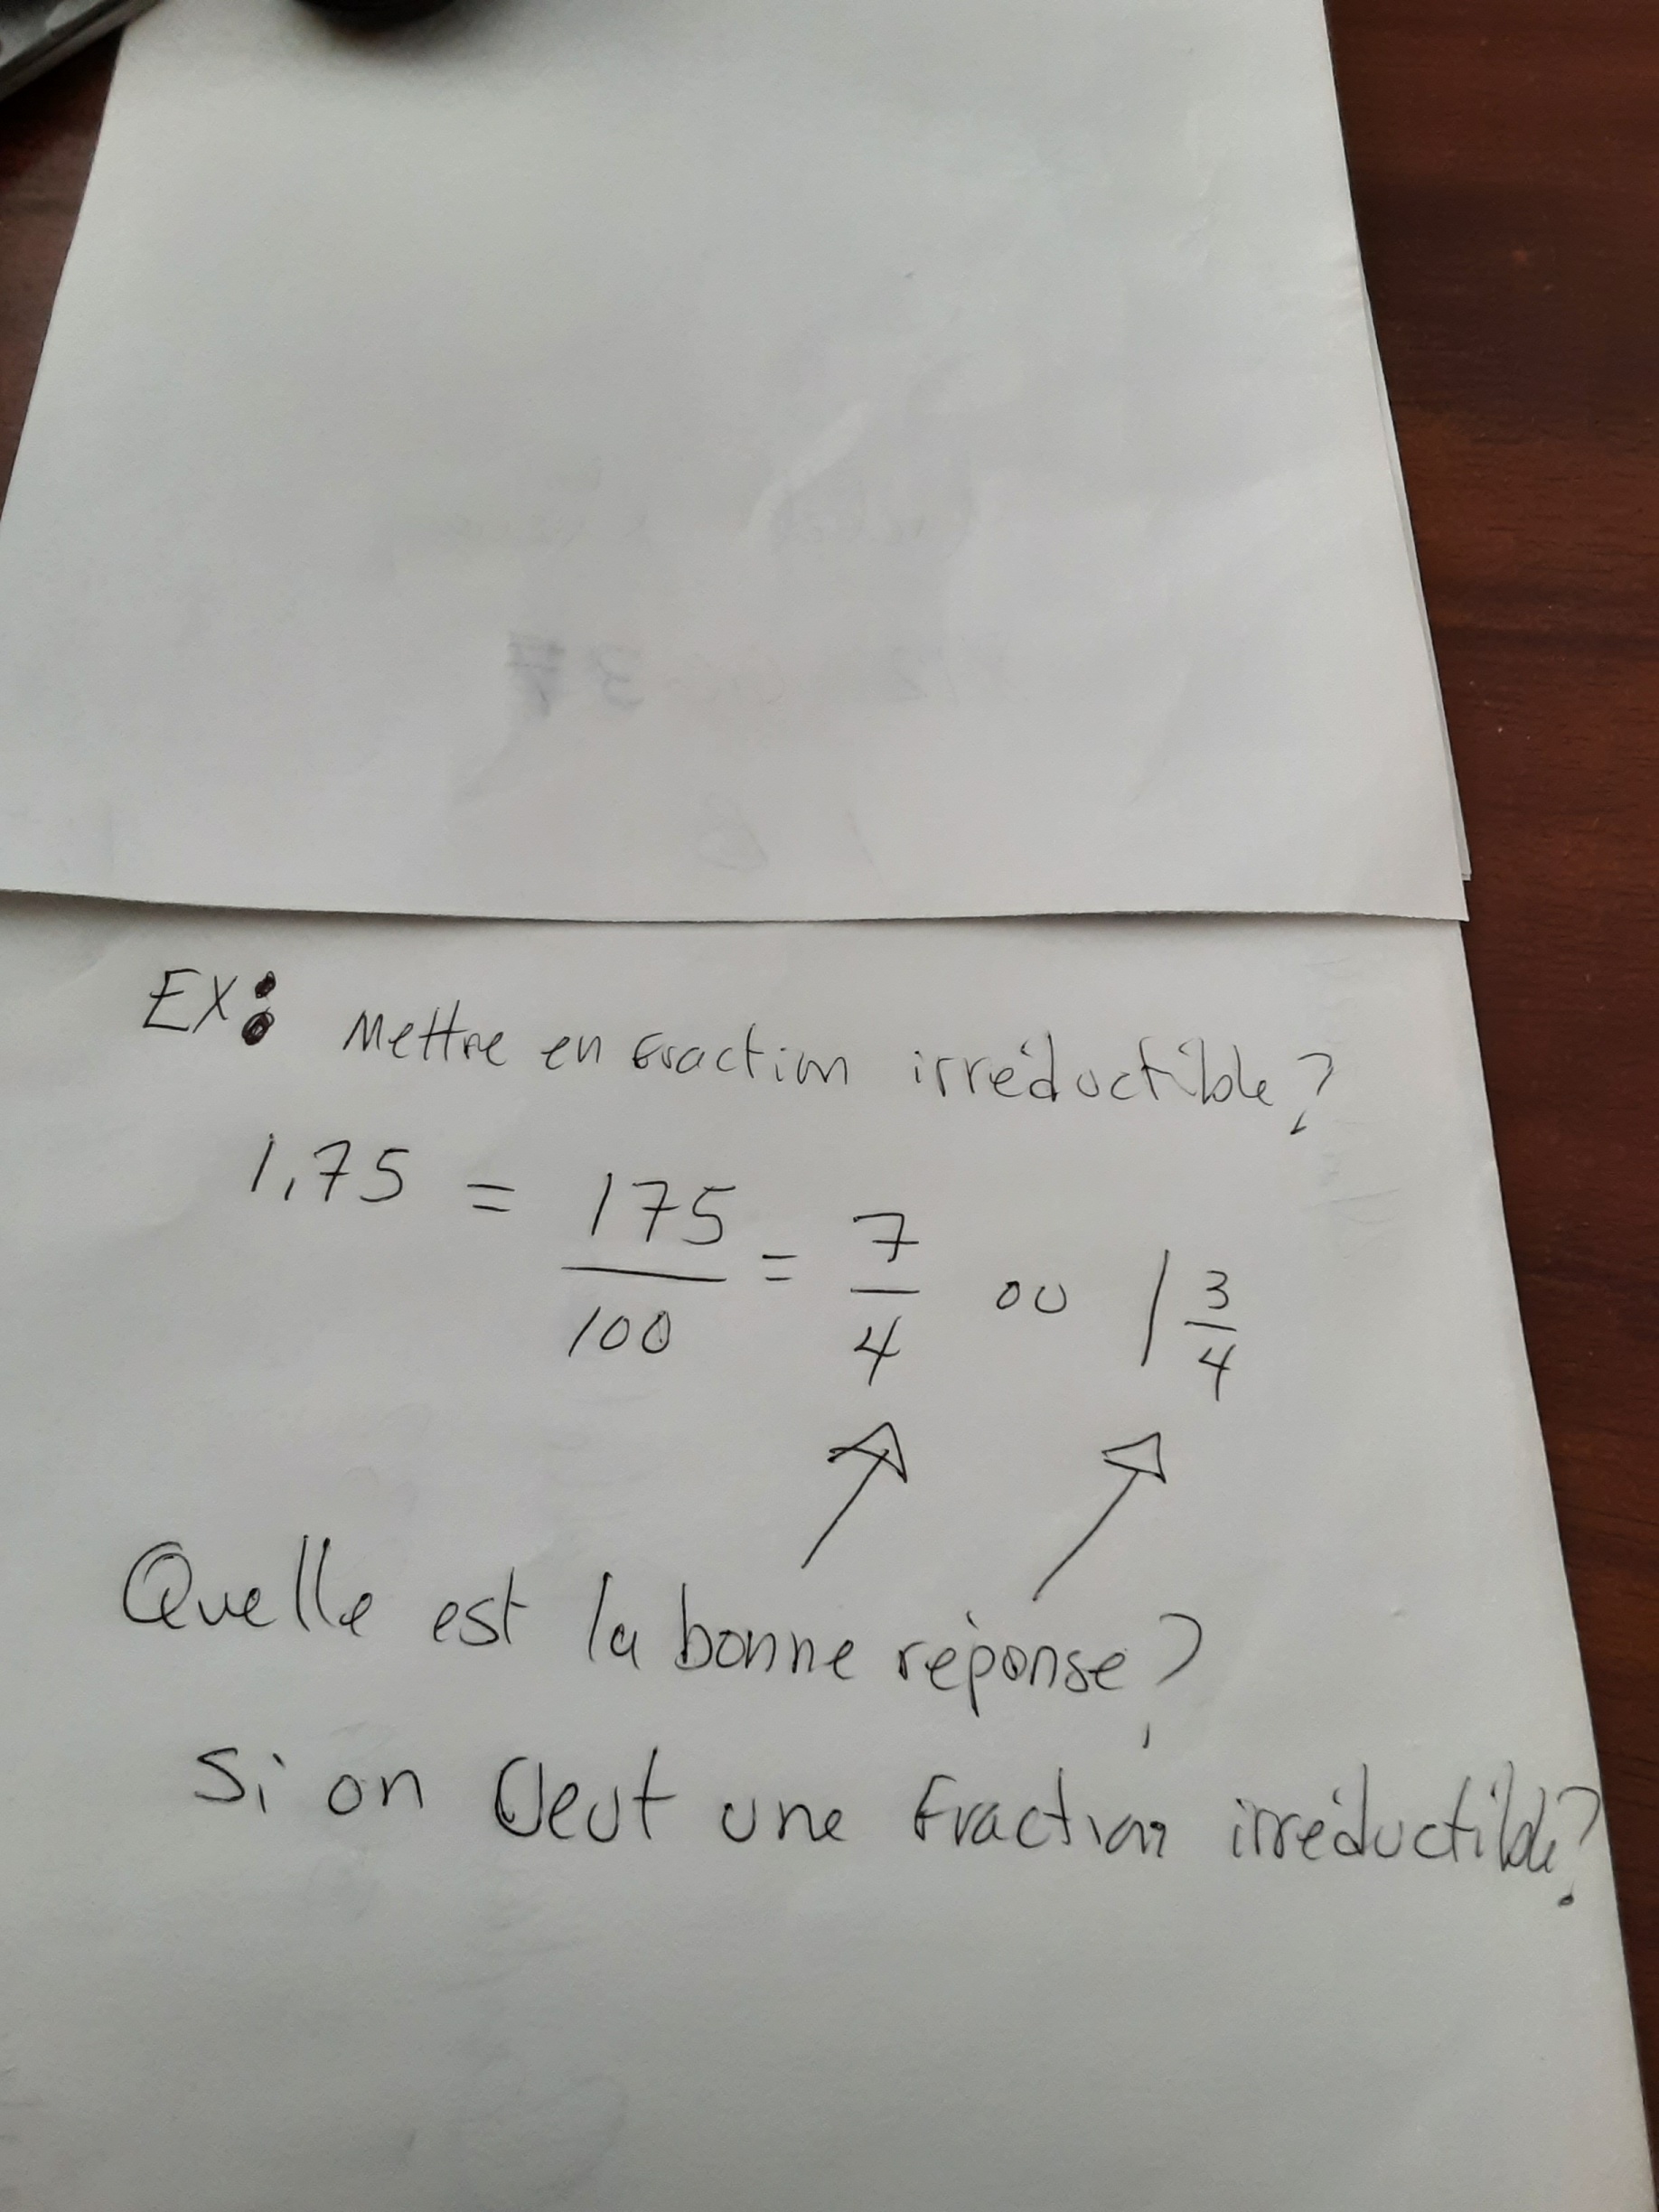 EX: Mettre en fraction irréductible?
1,75 = 175/100 = 7/4 ou 1 3/4
Quelle est la bonne réponse?
Si on veut une fraction irréductible?